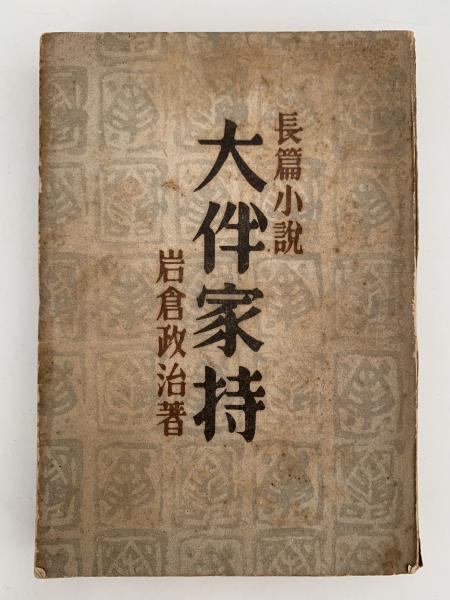 長篇小說
大伴家持
岩倉政治著